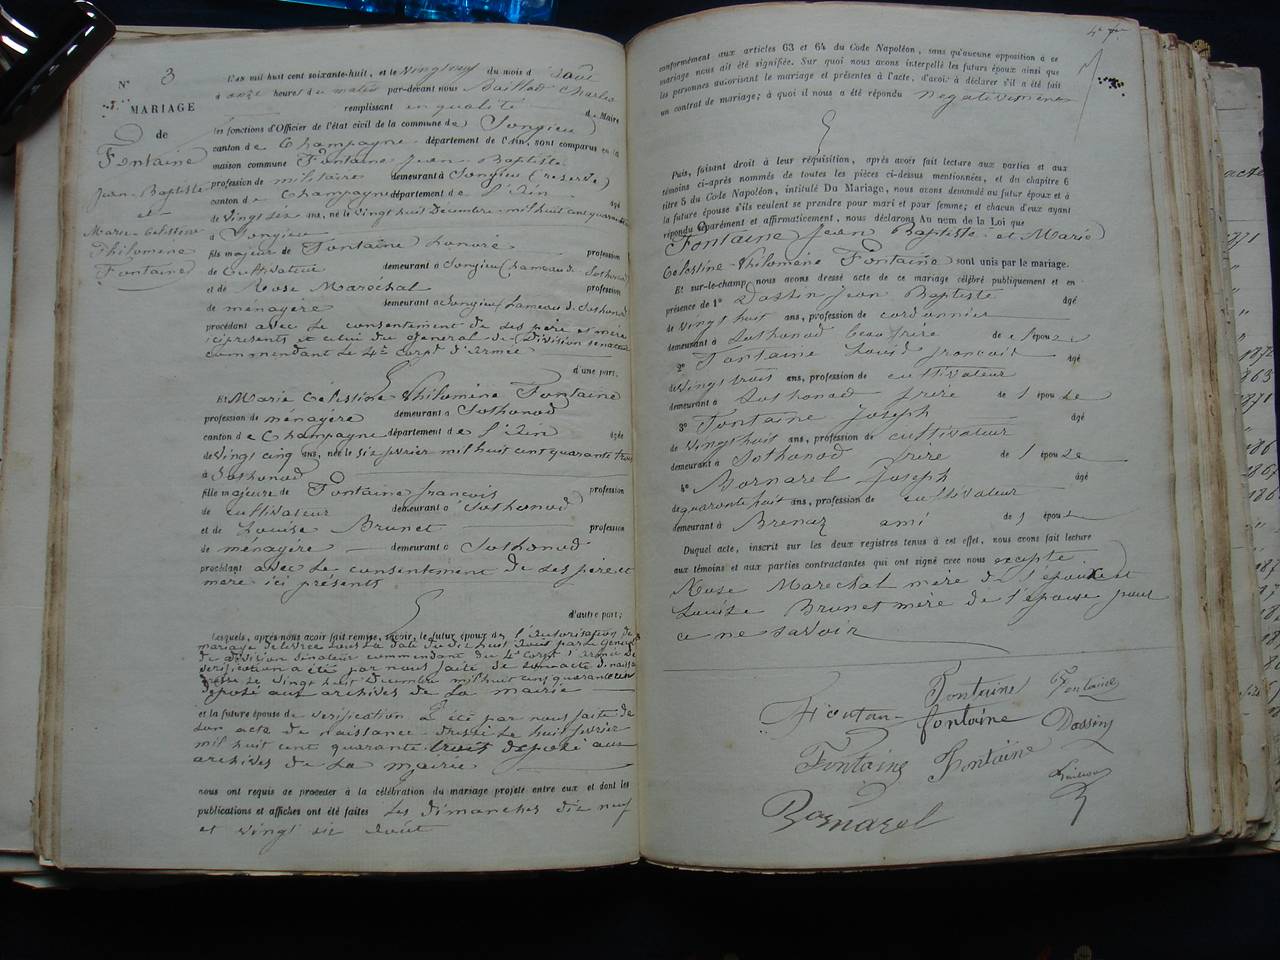 N° 3
MARIAGE
de
Fontaine
Jean-Baptiste
et
Marie Celestine
Philomine
Fontaine
L'an mil huit cent soixante-huit, et le vingt neuf du mois d'août
à onze heures du matin par-devant nous Charles
remplissant en qualité de Maire
les fonctions d'Officier de l'état civil de la commune de Songieu
canton de Champagne département de l'Ain, sont comparus en la
maison commune Fontaine Jean-Baptiste
profession de militaire demeurant à Songieu (reserve)
canton de Champagne département de l'Ain âgé
de vingt six ans, né le vingt huit Décembre mil huit cent quarante
à Songieu
fils majeur de Fontaine honoré profession
de cultivateur demeurant à Songieu (hameau de Sothonod)
et de Rose Maréchal profession
de ménagère demeurant à Songieu (hameau de Sothonod)
procédant avec le consentement de ses père et mère
ici présents et celui du général de Division senateur
commendant le 4e corps d'Armée
d'une part;
Et Marie Célestine Philomine Fontaine
profession de ménagère demeurant à Sothonod
canton de Champagne département de l'Ain âgée
de vingt cinq ans, née le six février mil huit cent quarante trois
à Sothonod
fille majeure de Fontaine françois profession
de cultivateur demeurant à Sothonod
et de Louise Brunet profession
de ménagère demeurant à Sothonod
procédant avec le consentement de ses père et
mere ici présents
d'autre part;
Lesquels, après nous avoir fait remise, savoir, le futur époux de l'autorisation de
mariage délivrée sous la date du dix huit août par le général
de division senateur commendant du 4e corps d'armée
verification a été par nous faite de son acte de naissance
le vingt huit Décembre mil huit cent quarante un
déposé aux archives de la mairie
et la future épouse de verification a été par nous faite de
son acte de naissance dressé le huit février
mil huit cent quarante trois déposé aux
archives de la mairie
nous ont requis de procéder à la célébration du mariage projeté entre eux et dont les
publications et affiches ont été faites les dimanches dix neuf
et vingt six août
conformément aux articles 63 et 64 du Code Napoléon, sans qu'aucune opposition à ce
mariage nous ait été signifiée. Sur quoi nous avons interpellé les futurs époux ainsi que
les personnes autorisant le mariage et présentes à l'acte, d'avoir à déclarer s'il a été fait
un contrat de mariage; à quoi il nous a été répondu negativement
Puis, faisant droit à leur réquisition, après avoir fait lecture aux parties et aux
témoins ci-après nommés de toutes les pièces ci-dessus mentionnées, et du chapitre 6
titre 5 du Code Napoléon, intitulé Du Mariage, nous avons demandé au futur époux et à
la future épouse s'ils veulent se prendre pour mari et pour femme; et chacun d'eux ayant
répondu séparément et affirmativement, nous déclarons Au nom de la Loi que
Fontaine Jean Baptiste et Marie
Célestine-Philomine Fontaine sont unis par le mariage.
Et sur-le-champ nous avons dressé acte de ce mariage célébré publiquement et en
présence de 1° Dassin Jean Baptiste âgé
de vingt huit ans, profession de cordonnier
demeurant à Sothonod beau frère de l'épouse
2° Fontaine Louis françois âgé
de vingt trois ans, profession de cultivateur
demeurant à Sothonod frère de l'épouse
3° Fontaine Joseph âgé
de vingt huit ans, profession de cultivateur
demeurant à Sothonod frère de l'épouse
4° Bornarel Joseph âgé
de quarante huit ans, profession de cultivateur
demeurant à Brenaz ami de l'épouse
Duquel acte, inscrit sur les deux registres tenus à cet effet, nous avons fait lecture
aux témoins et aux parties contractantes qui ont signé avec nous excepté
Rose Maréchal mère de l'époux et
Louise Brunet mère de l'épouse pour
ce ne savoir
Fontaine Fontaine
fontaine Dassin
Fontaine Fontaine
Bornarel
acte
1871
1872
1863
1871